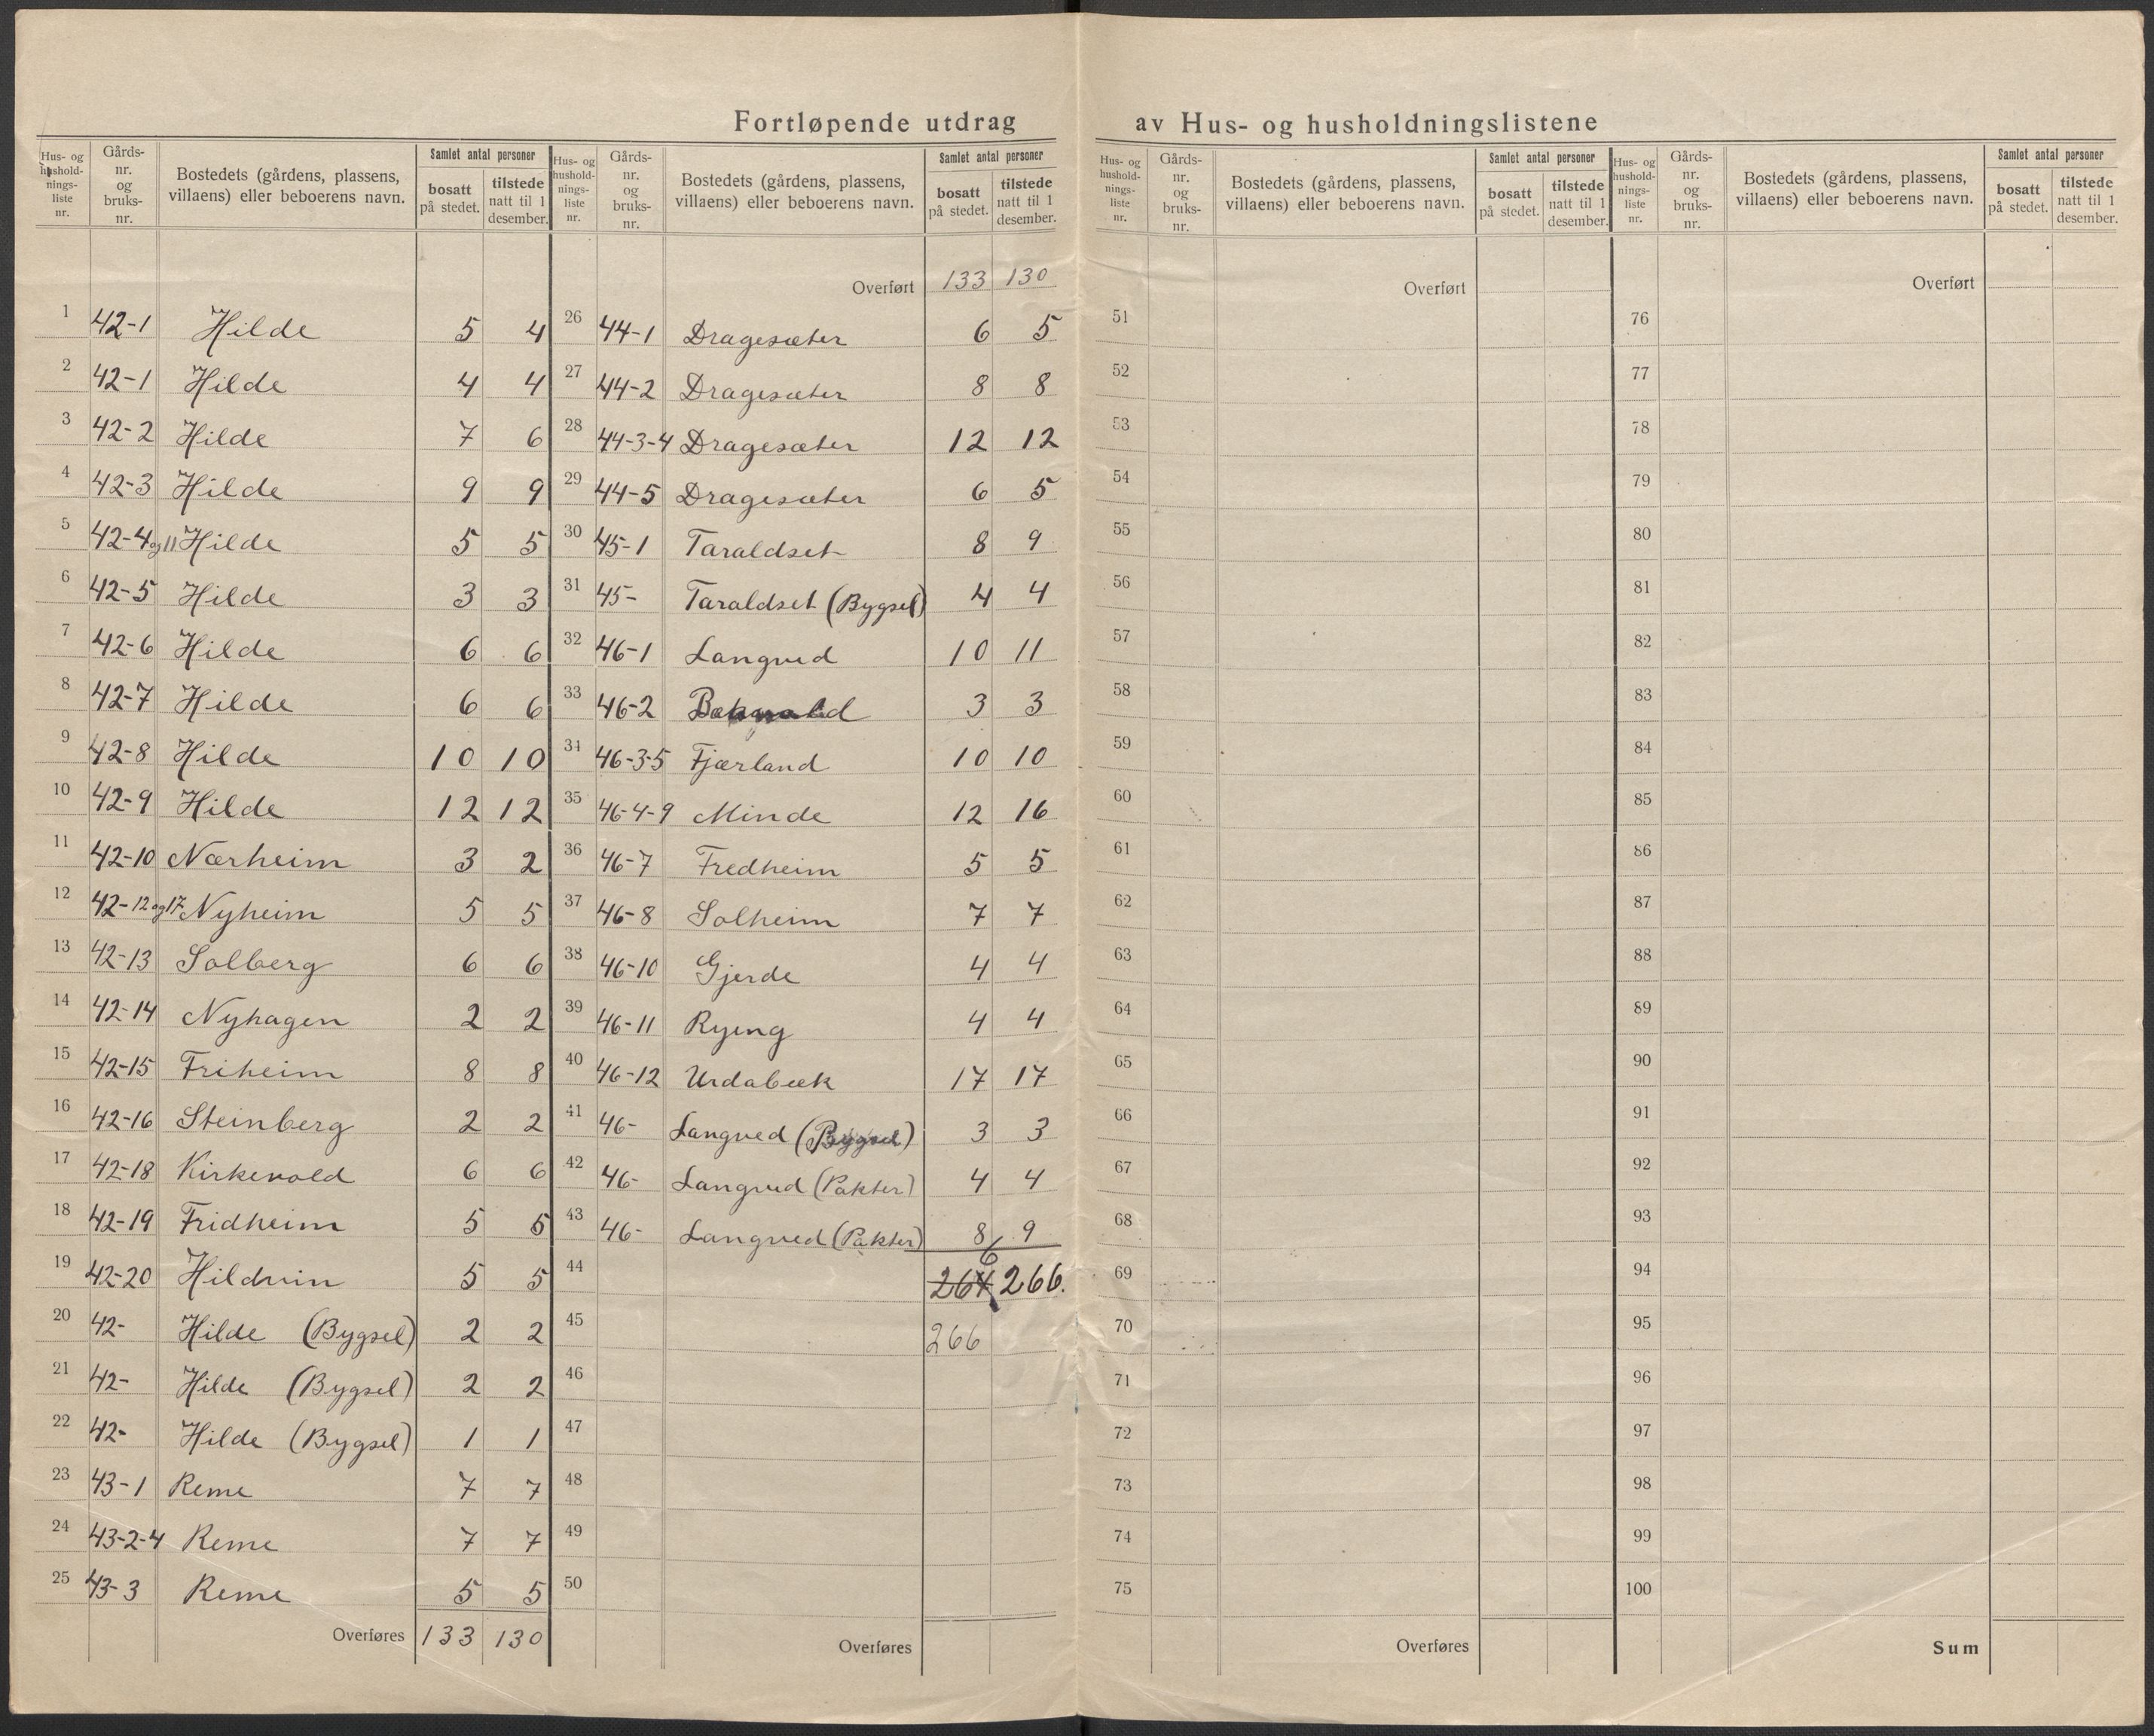 Fortløpende utdrag av Hus- og husholdningslistene
Hus- og hushold- nings- liste nr. | Gårds- nr. og bruks- nr. | Bostedets (gårdens, plassens, villaens) eller beboerens navn. | Samlet antal personer | bosatt på stedet. | tilstede natt til 1 desember.
1 42-1 Hilde 5 4
2 42-1 Hilde 4 4
3 42-2 Hilde 7 6
4 42-3 Hilde 9 9
5 42-4 og 11 Hilde 5 5
6 42-5 Hilde 3 3
7 42-6 Hilde 6 6
8 42-7 Hilde 6 6
9 42-8 Hilde 10 10
10 42-9 Hilde 12 12
11 42-10 Nærheim 3 2
12 42-12 og 17 Nyheim 5 5
13 42-13 Solberg 6 6
14 42-14 Nyhagen 2 2
15 42-15 Friheim 8 8
16 42-16 Steinberg 2 2
17 42-18 Kirkevold 6 6
18 42-19 Fridheim 5 5
19 42-20 Hildvin 5 5
20 42- Hilde (Bygsel) 2 2
21 42- Hilde (Bygsel) 2 2
22 42- Hilde (Bygsel) 1 1
23 43-1 Reme 7 7
24 43-2-4 Reme 7 7
25 43-3 Reme 5 5
Overføres 133 130
Hus- og hushold- nings- liste nr. | Gårds- nr. og bruks- nr. | Bostedets (gårdens, plassens, villaens) eller beboerens navn. | Samlet antal personer | bosatt på stedet. | tilstede natt til 1 desember.
Overført 133 130
26 44-1 Dragesæter 6 5
27 44-2 Dragesæter 8 8
28 44-3-4 Dragesæter 12 12
29 44-5 Dragesæter 6 5
30 45-1 Taraldset 8 9
31 45- Taraldset (Bygsel) 4 4
32 46-1 Langved 10 11
33 46-2 3 3
34 46-3-5 Fjærland 10 10
35 46-4-9 Minde 12 16
36 46-7 Fredheim 5 5
37 46-8 Solheim 7 7
38 46-10 Gjerde 4 4
39 46-11 Ryeng 4 4
40 46-12 Urdabæk 17 17
41 46- Langved (Bygsel) 3 3
42 46- Langved (Pakter) 4 4
43 46- Langved (Pakter) 8 9
6
44 264 266.
45 266
46
47
48
49
50
Overføres
Hus- og hushold- nings- liste nr. | Gårds- nr. og bruks- nr. | Bostedets (gårdens, plassens, villaens) eller beboerens navn. | Samlet antal personer | bosatt på stedet. | tilstede natt til 1 desember.
Overført
51
52
53
54
55
56
57
58
59
60
61
62
63
64
65
66
67
68
69
70
71
72
73
74
75
Overføres
Hus- og hushold- nings- liste nr. | Gårds- nr. og bruks- nr. | Bostedets (gårdens, plassens, villaens) eller beboerens navn. | Samlet antal personer | bosatt på stedet. | tilstede natt til 1 desember.
Overført
76
77
78
79
80
81
82
83
84
85
86
87
88
89
90
91
92
93
94
95
96
97
98
99
100
Sum